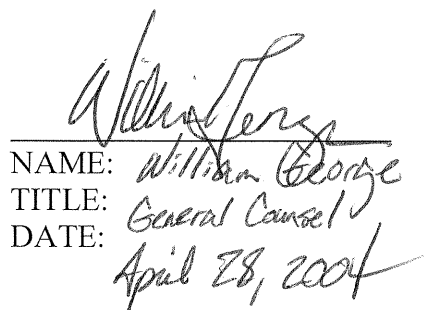 William George
NAME: William George
TITLE: General Counsel
DATE: April 28, 2004